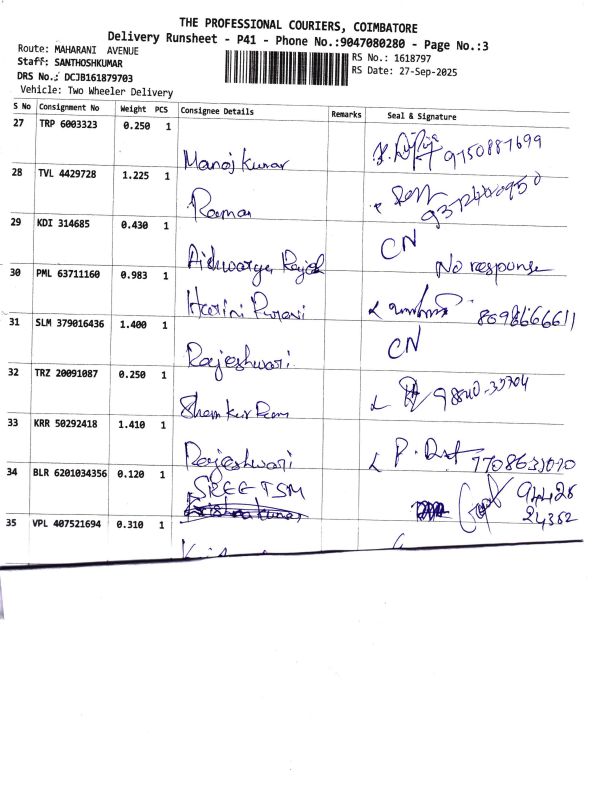 THE PROFESSIONAL COURIERS, COIMBATORE
Delivery Runsheet - P41 - Phone No.:9047080280 - Page No.:3
Route: MAHARANI AVENUE
Staff: SANTHOSHKUMAR
DRS No.: DCJB161879703
Vehicle: Two Wheeler Delivery
RS No.: 1618797
RS Date: 27-Sep-2025
S No Consignment No Weight PCS Consignee Details Remarks Seal & Signature
27 TRP 6003323 0.250 1
Manoj Kumar 9750887699
28 TVL 4429728 1.225 1
Raman
29 KDI 314685 0.430 1 CN
Aishwarya No response
30 PML 63711160 0.983 1
Harini 8098666611
31 SLM 379016436 1.400 1 CN
Rajeshwari
32 TRZ 20091087 0.250 1
33 KRR 50292418 1.410 1
Rajeshwari
34 BLR 6201034356 0.120 1
SREE TSM 94426
24362
35 VPL 407521694 0.310 1